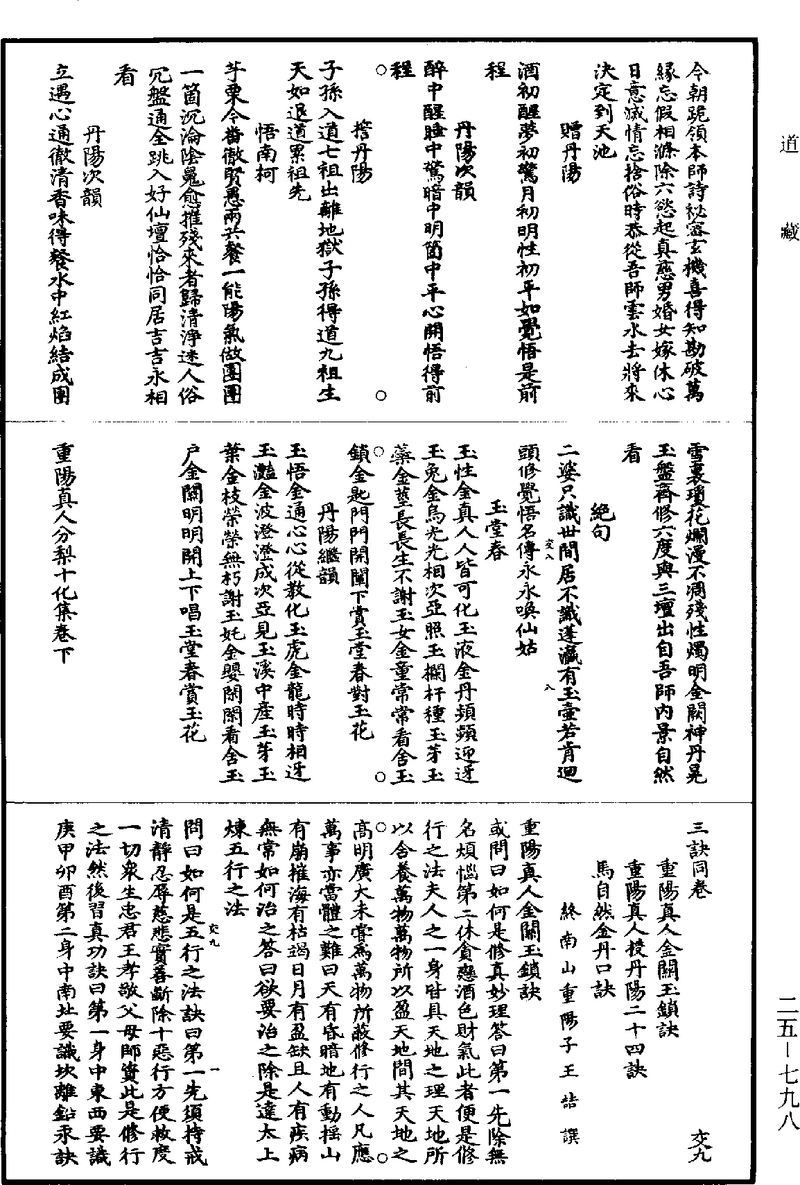 道藏
今朝跪領本師詩秘密玄機喜得知勘破萬
緣忘假相滌除六慾起真慈男婚女嫁休心
日意滅情忘捨俗時恭從吾師雲水去將來
決定到天池
贈丹陽
酒初醒夢初驚月初明性初平如覺悟是前
程
丹陽次韻
醉中醒睡中驚暗中明箇中平心開悟得前
程
擔丹陽
子孫入道七祖出離地獄子孫得道九祖生
天如退道累祖先
悟南柯
芋栗令當徹賢愚兩共餐一能陽氣做團團
一箇沉淪陰鬼愈摧殘來者歸清淨迷人俗
冗盤通全跳入好仙壇恰恰同居吉吉永相
看
丹陽次韻
立遇心通徹清香味得餐水中紅焰結成團
雪裏瓊花爛漫不凋殘性燭明金闕神丹晃
玉盤齊修六度與三壇出自吾師內景自然
看
絕句
二婆只識世間居不識蓬瀛有玉壺若肯迴
頭修覺悟名傳永永喚仙姑
交八
八
玉堂春
玉性金真人人皆可化玉液金丹頻頻迎迓
玉兔金烏光光相次亞照玉欄杆種玉芽玉
蘂金莖長長生不謝玉女金童常常看舍玉
鎖金匙門門開闡下賞玉堂春對玉花
丹陽繼韻
玉悟金通心心從教化玉虎金龍時時相迓
玉灩金波澄澄成次亞見玉溪中產玉芽玉
葉金枝榮榮無朽謝玉奼金嬰閑閑看舍玉
户金關明明開上下唱玉堂春賞玉花
重陽真人分梨十化集卷下
三訣同卷
交九
重陽真人金關玉鎖訣
重陽真人授丹陽二十四訣
馬自然金丹口訣
終南山重陽子王嚞譔
重陽真人金關玉鎖訣
或問曰如何是修真妙理答曰第一先除無
名煩惱第二休貪戀酒色財氣此者便是修
行之法夫人之一身皆具天地之理天地所
以含養萬物萬物所以盈天地間其天地之
高明廣大未嘗為萬物所蔽修行之人凡應
萬事亦當體之難曰天有昏暗地有動搖山
有崩摧海有枯竭日月有盈缺且人有疾病
無常如何治之答曰欲要治之除是達太上
煉五行之法
問曰如何是五行之法訣曰第一先須持戒
清靜忍辱慈悲實善斷除十惡行方便救度
一切衆生忠君王孝敬父母師資此是修行
之法然後習真功訣曰第一身中東西要識
庚甲卯酉第二身中南北要識坎離鉛汞訣
交九
一
二五－七九八